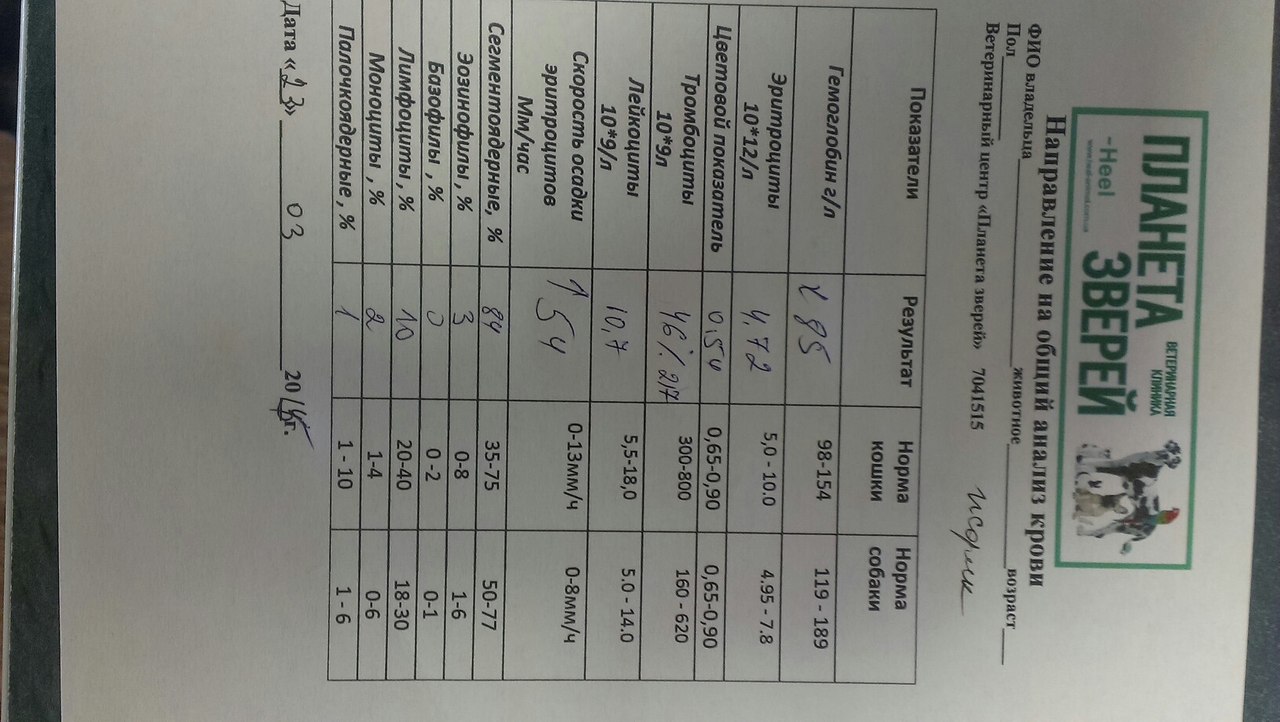 ПЛАНЕТА
ЗВЕРЕЙ
ВЕТЕРИНАРНАЯ
КЛИНИКА
-Heel
Направление на общий анализ крови
ФИО владельца____________животное____________возраст____
Пол________
Ветеринарный центр «Планета зверей» 7041515
Показатели Результат Норма кошки Норма собаки
Гемоглобин г/л 85 98-154 119 - 189
Эритроциты 10*12/л 4,72 5,0 - 10.0 4.95 - 7.8
Цветовой показатель 0,54 0,65-0,90 0,65-0,90
Тромбоциты 10*9л 46% 217 300-800 160 - 620
Лейкоциты 10*9/л 10,7 5,5-18,0 5.0 - 14.0
Скорость осадки эритроцитов Мм/час ↑54 0-13мм/ч 0-8мм/ч
Сегментоядерные, % 84 35-75 50-77
Эозинофилы, % 3 0-8 1-6
Базофилы , % 0 0 -2 0-1
Лимфоциты, % 10 20-40 18-30
Моноциты , % 2 1-4 0-6
Палочкоядерные, % 1 1 - 10 1 - 6
Дата «23» 03 201 г.